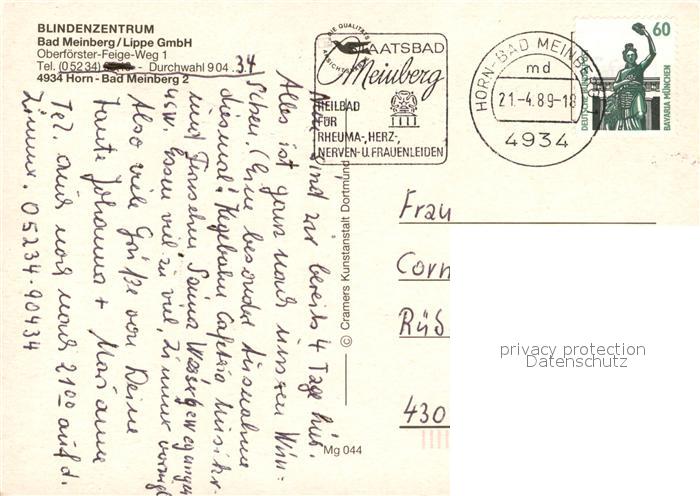 BLINDENZENTRUM
Bad Meinberg/Lippe GmbH
Oberförster-Feige-Weg 1
Tel. (05234) Durchwahl 904 . 34
4934 Horn - Bad Meinberg 2
DIE QUALITÄT
STAATSBAD
Meinberg
HEILBAD
FÜR
RHEUMA-, HERZ-,
NERVEN- U. FRAUENLEIDEN
HORN-BAD MEINBERG
md
21.-4.89-18
4934
60
DEUTSCHE BUNDESPOST
BAVARIA MÜNCHEN
Nun sind wir bereits 4 Tage hier.
Alles ist ganz nach unseren Wün-
schen. Eine besondere Ausnahme
diesmal: Kegelbahn Cafeteria Musik
und Fernsehen Sauna Wassergewegungen
usw. Essen viel zu viel, Zimmer
Also viele Grüße von Deine
Tante Johanna + Marianne
Tel. auch noch nach 21 00 auf d.
Zimmer. 05234-90434
© Cramers Kunstanstalt Dortmund
Mg 044
Frau
Corn
Rüd
430
privacy protection
Datenschutz